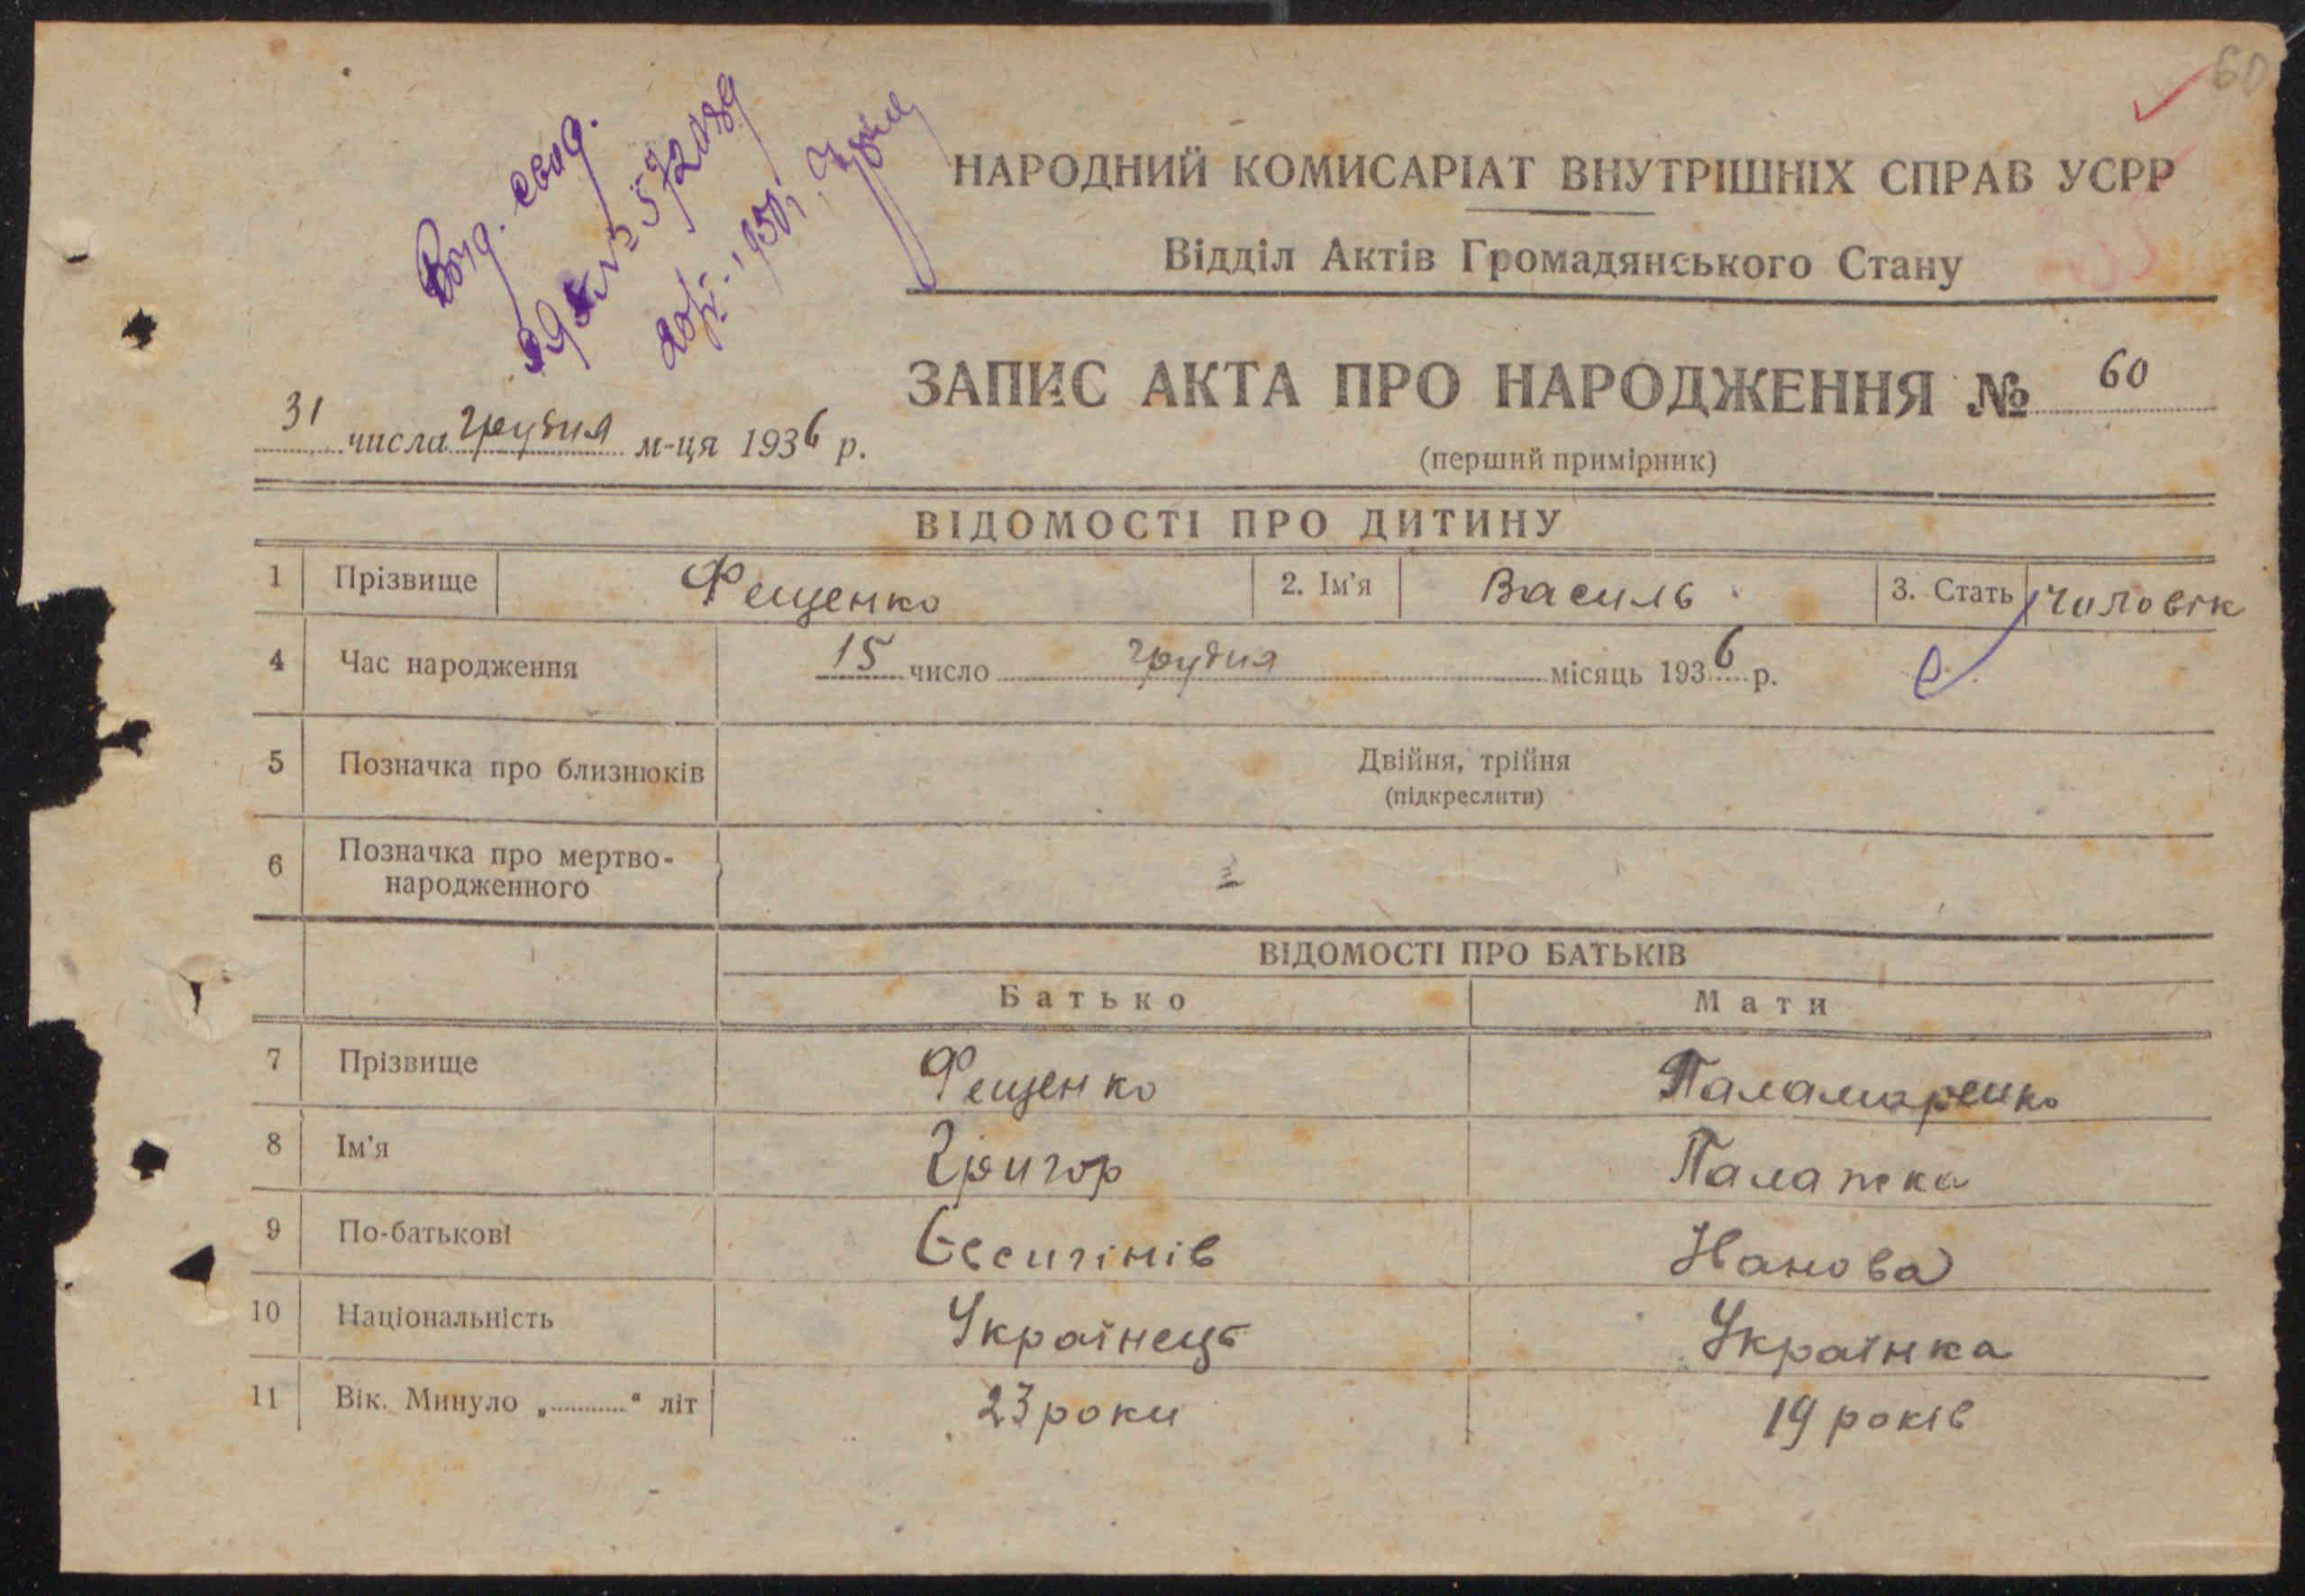 60
Выд. свид.
НАРОДНИЙ КОМИСАРІАТ ВНУТРІШНІХ СПРАВ УСРР
Відділ Актів Громадянського Стану
ЗАПИС АКТА ПРО НАРОДЖЕННЯ № 60
31 числа грудня м-ця 1936 р.
(перший примірник)
ВІДОМОСТІ ПРО ДИТИНУ
1 Прізвище Фещенко 2. Ім'я Василь 3. Стать чоловік
4 Час народження 15 число грудня місяць 1936 р.
5 Позначка про близнюків Двійня, трійня
(підкреслити)
6 Позначка про мертво-
народженного
ВІДОМОСТІ ПРО БАТЬКІВ
Батько Мати
7 Прізвище Фещенко Паламаренко
8 Ім'я Григор Палажка
9 По-батькові Євсигінів Іванова
10 Національність Українець Українка
11 Вік. Минуло „..........“ літ 23 роки 19 років